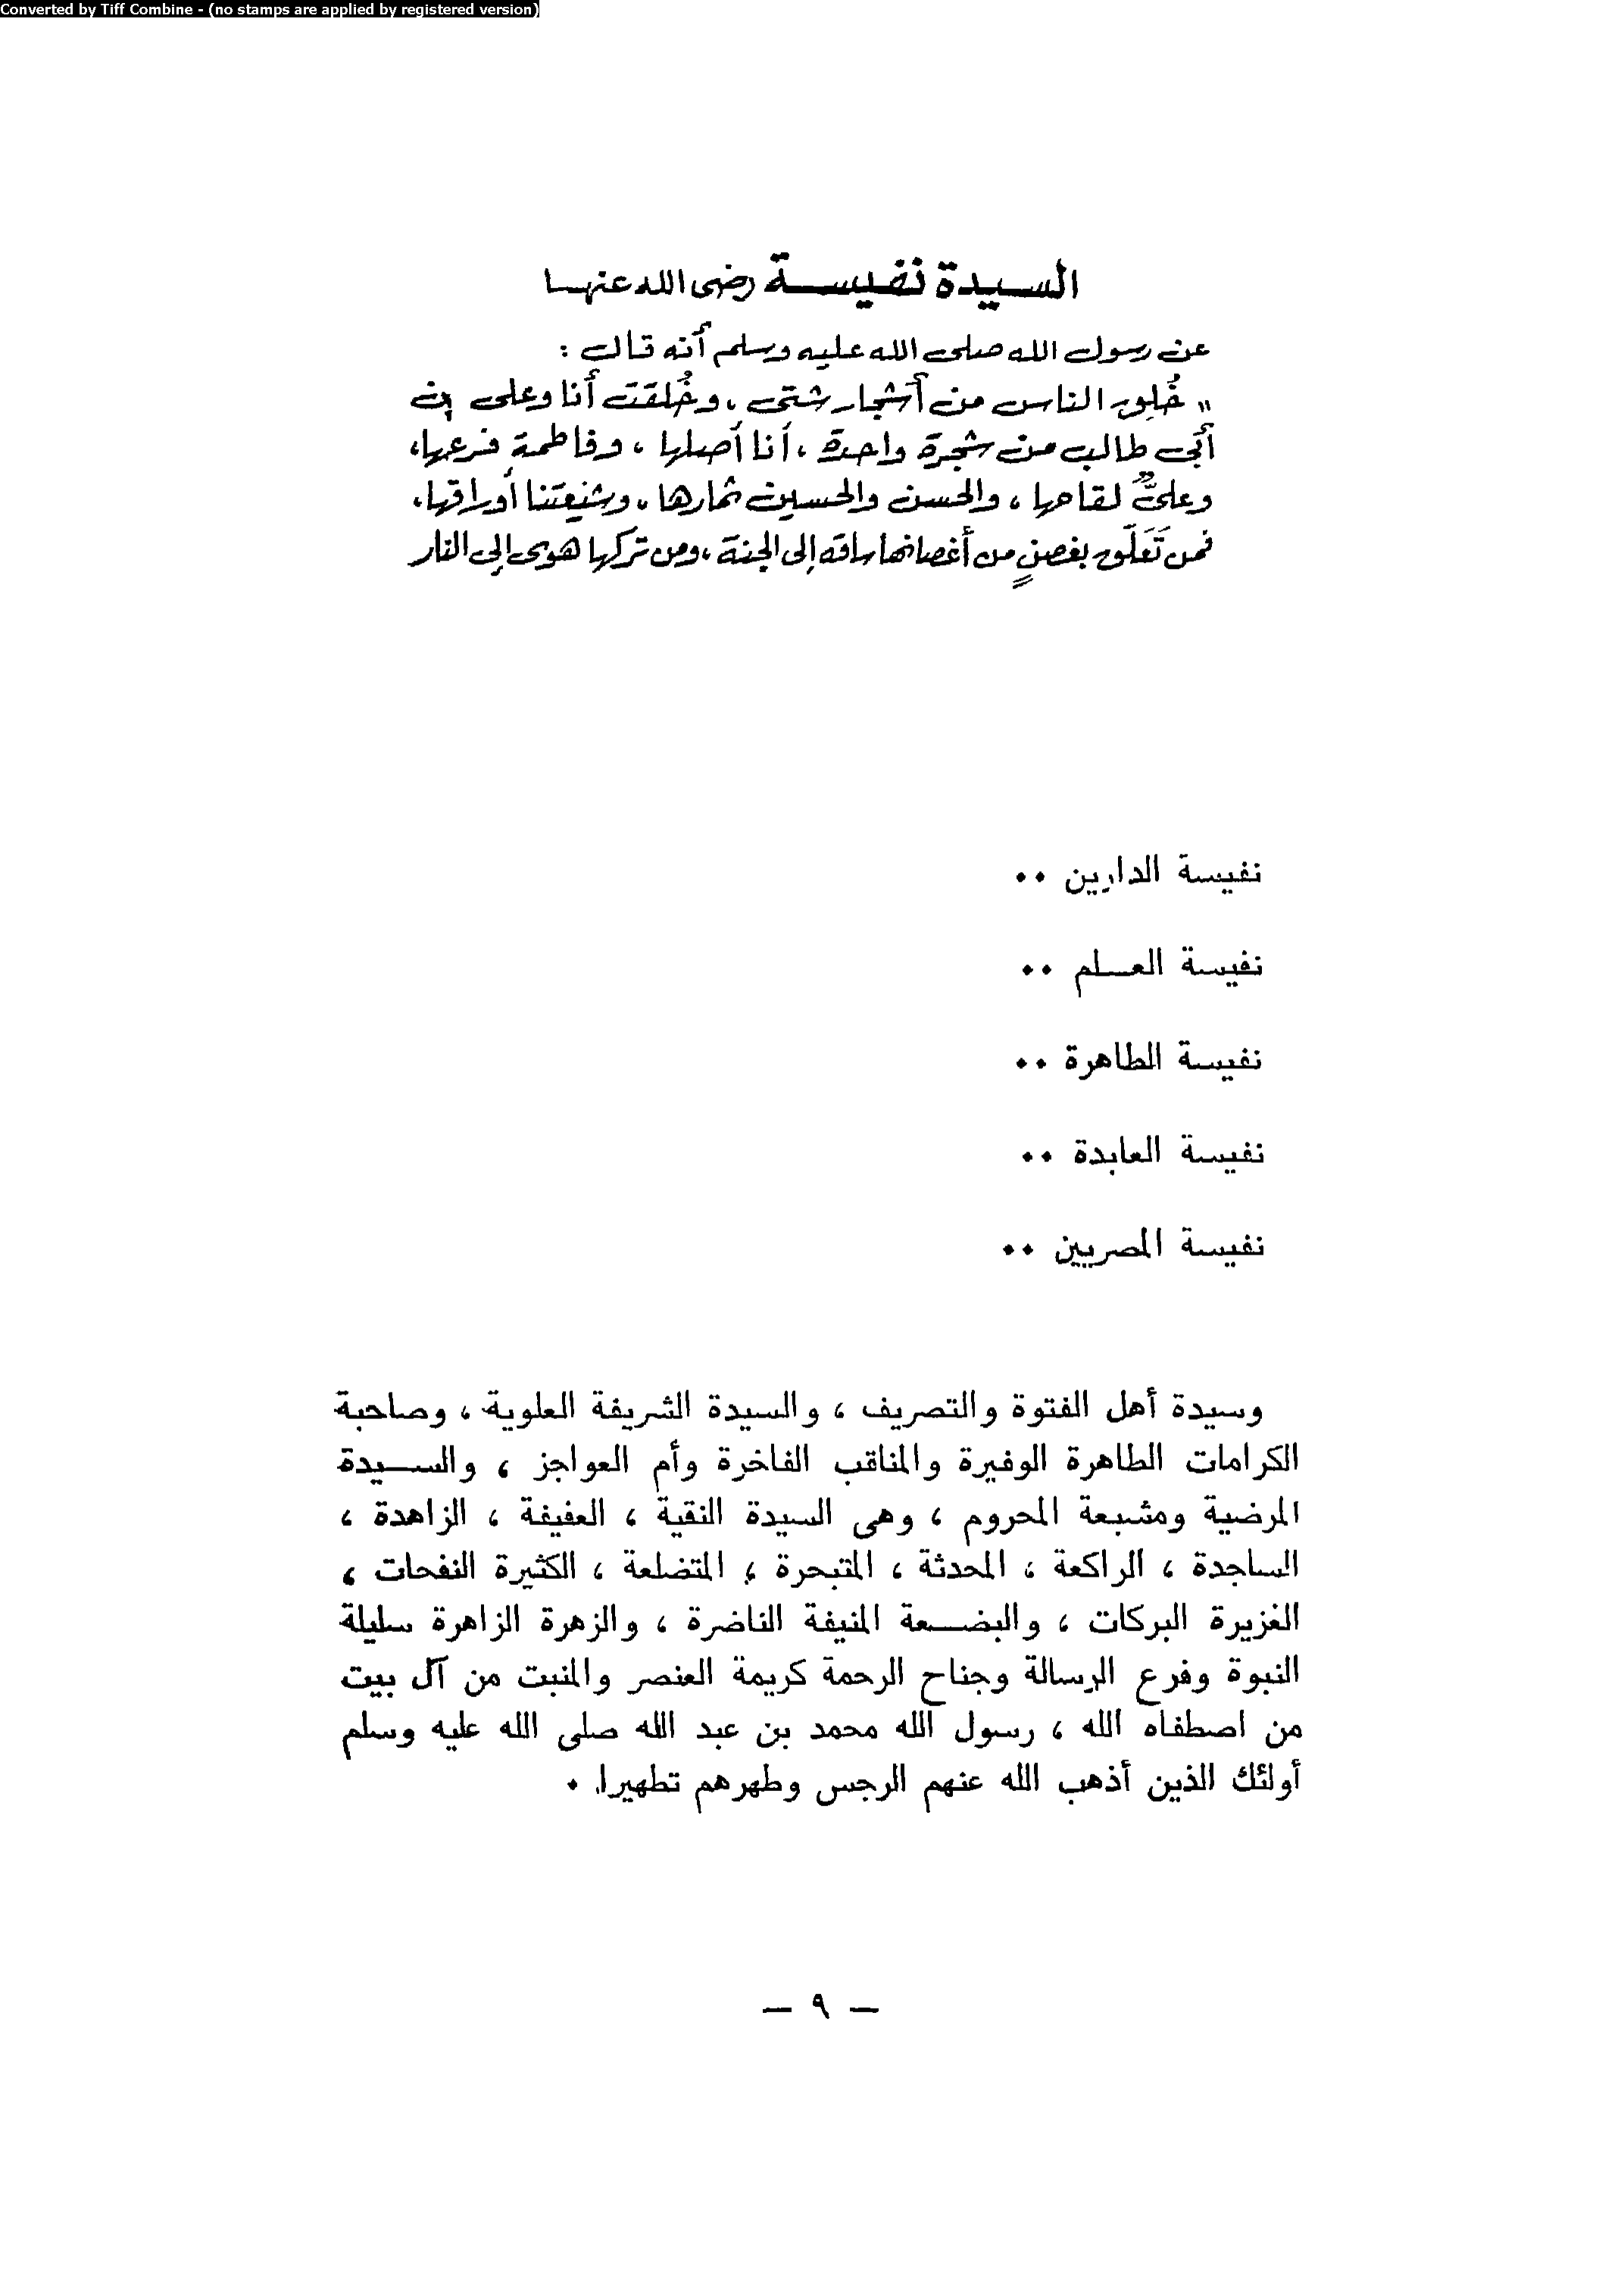 Converted by Tiff Combine - (no stamps are applied by registered version)
السيدة نفيسة رضى الله عنها
عن رسول الله صلى الله عليه وسلم أنه قال :
" خُلِق الناس من أشجار شتى ، وخُلقت أنا وعلى بن
أبى طالب من شجرة واحدة ، أنا أصلها ، وفاطمة فرعها ،
وعلىٌّ لقاحها ، والحسن والحسين ثمارها ، وشيعتنا أوراقها ،
فمن تَعَلَّق بغصنٍ من أغصانها ساقه إلى الجنة ، ومن تركها هوى إلى النار
نفيسة الدارين ••
نفيسة العلم ••
نفيسة الطاهرة ••
نفيسة العابدة ••
نفيسة المصريين ••
وسيدة أهل الفتوة والتصريف ، والسيدة الشريفة العلوية ، وصاحبة
الكرامات الطاهرة الوفيرة والمناقب الفاخرة وأم العواجز ، والسيدة
المرضية ومشبعة المحروم ، وهى السيدة النقية ، العفيفة ، الزاهدة ،
الساجدة ، الراكعة ، المحدثة ، المتبحرة ، المتضلعة ، الكثيرة النفحات ،
الغزيرة البركات ، والبضعة المنيفة الناضرة ، والزهرة الزاهرة سليلة
النبوة وفرع الرسالة وجناح الرحمة كريمة العنصر والمنبت من آل بيت
من اصطفاه الله ، رسول الله محمد بن عبد الله صلى الله عليه وسلم
أولئك الذين أذهب الله عنهم الرجس وطهرهم تطهيرا •
— ٩ —